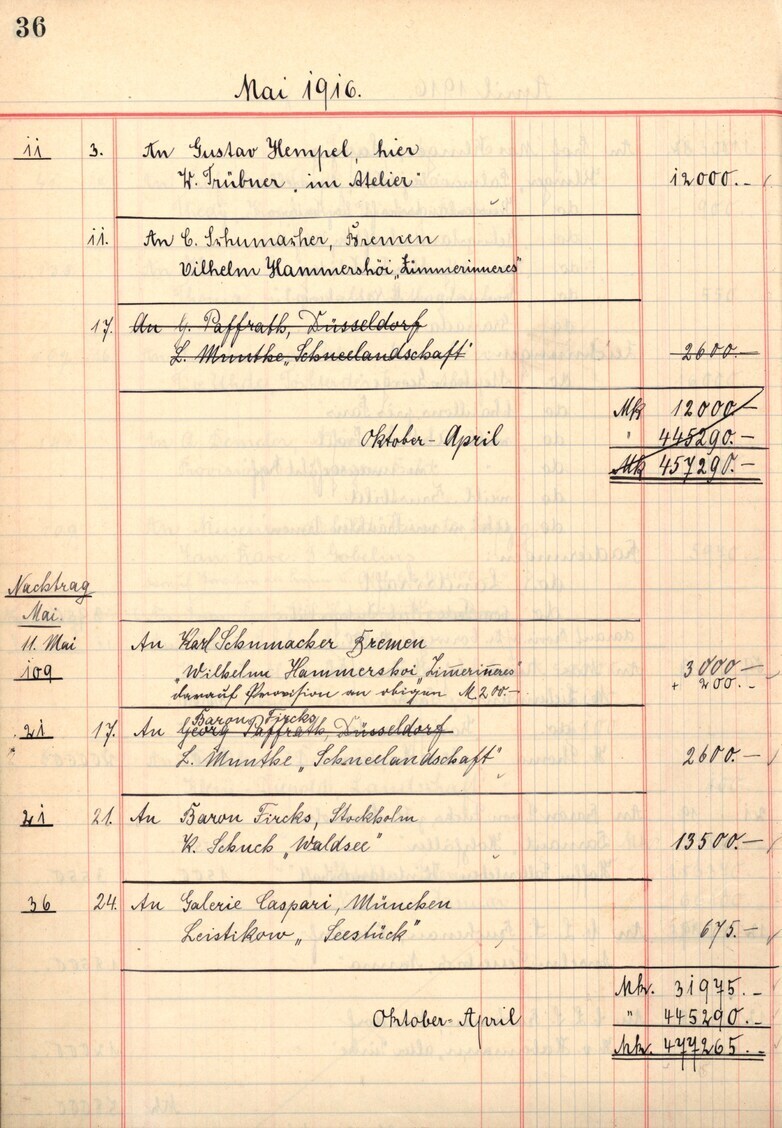 36
Mai 1916.
11 3. An Gustav Hempel, hier
W. Trübner „im Atelier" 12000.–
11. An C. Schumacher, Bremen
Vilhelm Hammershöi „Zimmerinneres"
17. An G. Paffrath, Düsseldorf
L. Munthe „Schneelandschaft" 2600.–
Mk 12000.–
Oktober–April " 445290.–
Mk 457290.–
Nachtrag
Mai.
11. Mai An Karl Schumacher Bremen
109 „Wilhelm Hammershoi „Zimerineres" 3000–
darauf Provision an obigen M 200.– + 200.–
Baron Fircks
21 17. An Georg Paffrath, Düsseldorf
L. Munthe „Schneelandschaft" 2600.–
21 21. An Baron Fircks, Stockholm
K. Schuch „Waldsee" 13500.–
36 24. An Galerie Caspari, München
Leistikow „Seestück" 675.–
Mk. 31975.–
Oktober–April " 445290.–
Mk. 477265.–